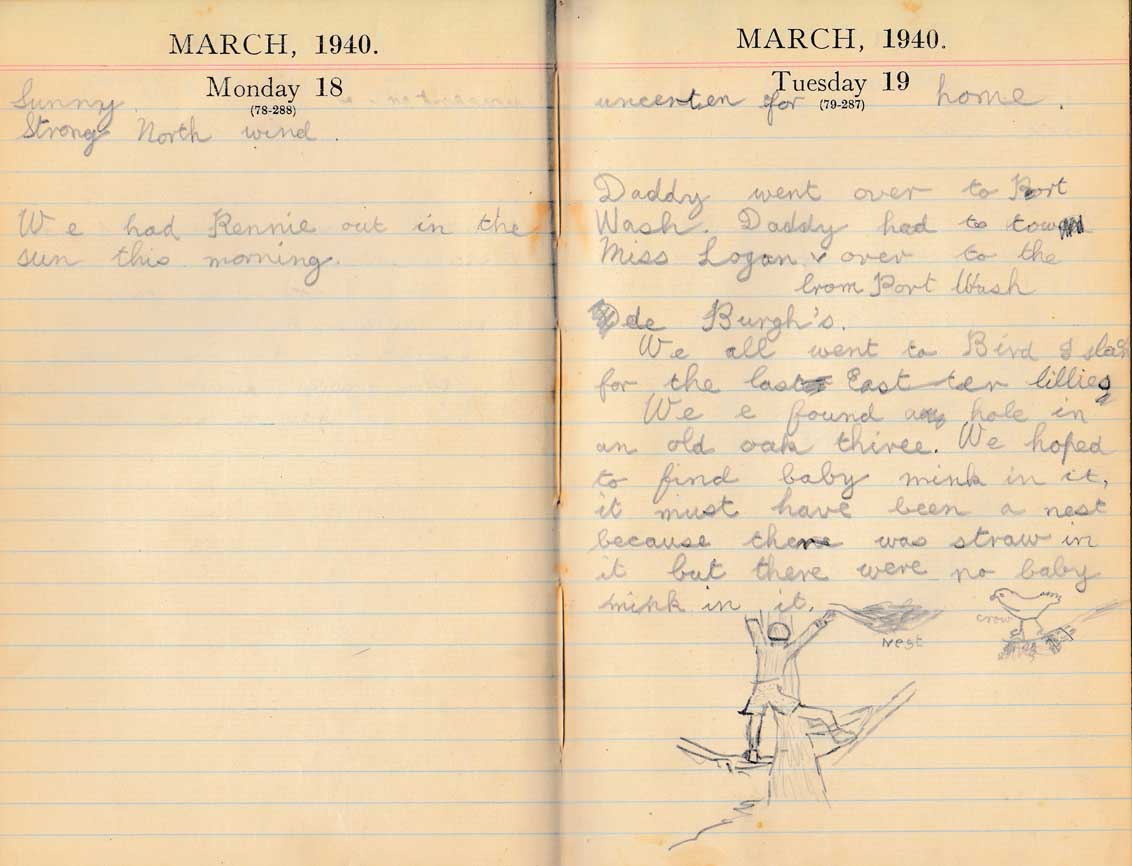 MARCH, 1940.
Monday 18
(78-288)
Sunny.
Strong North wind.
We had Rennie out in the
sun this morning.
MARCH, 1940.
Tuesday 19
(79-287)
uncerten for home.
Daddy went over to Port
Wash. Daddy had to tow
Miss Logan over to the
from Port Wash
de Burgh's.
We all went to Bird Islan
for the last East ter lillies
We e found a hole in
an old oak thiree. We hoped
to find baby mink in it,
it must have been a nest
because there was straw in
it but there were no baby
mink in it.
Nest
crow